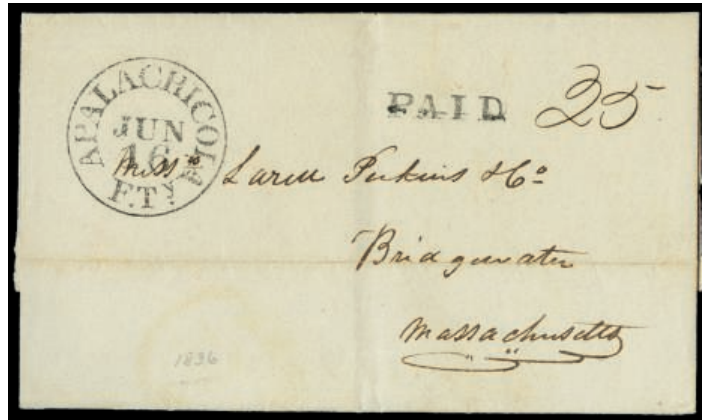 APALACHICOLA
JUN
16
F.TY.
PAID 25
Messrs Lazell Perkins & Co
Bridgewater
Massachusetts
1836